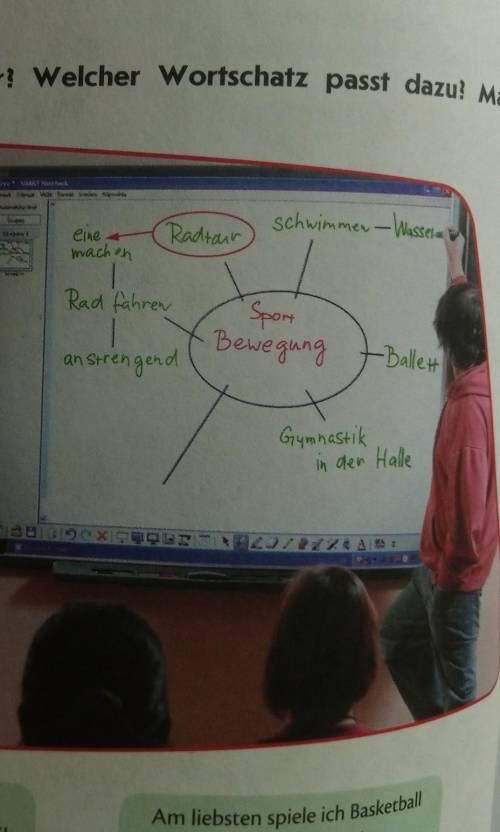 Welcher Wortschatz passt dazu?
eine
machen
Radtour
schwimmen – Wasser
Rad fahren
anstrengend
Sport
Bewegung
Ballett
Gymnastik
in der Halle
Am liebsten spiele ich Basketball